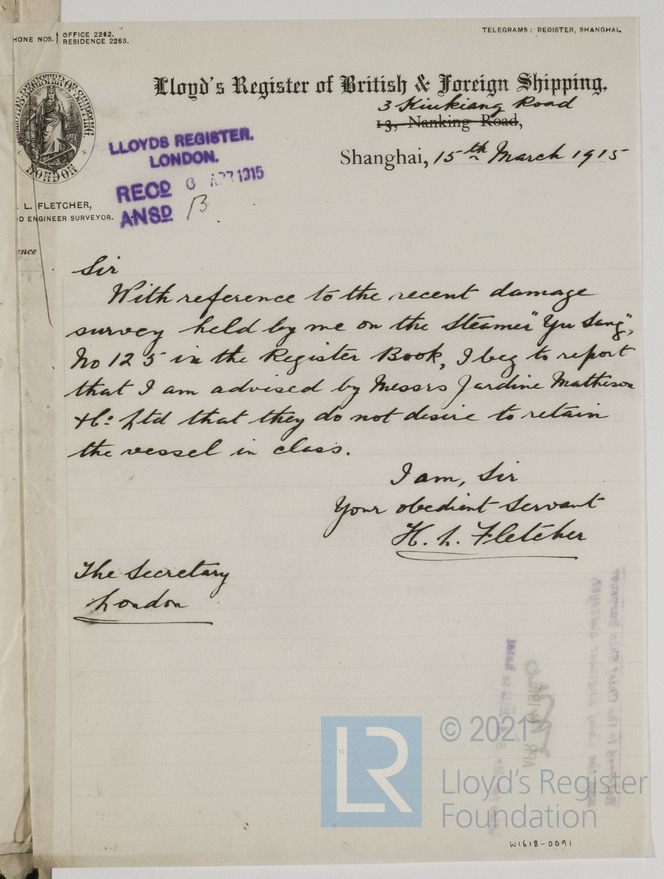 HONE NOS. OFFICE 2262.
RESIDENCE 2263.
TELEGRAMS: REGISTER, SHANGHAI.
Lloyd's Register of British & Foreign Shipping,
3 Kiukiang Road
13, Nanking Road,
Shanghai, 15th March 1915
LLOYD'S REGISTER OF SHIPPING
LONDON
LLOYDS REGISTER.
LONDON.
RECD 6 APR 1915
ANSD
L. FLETCHER,
ND ENGINEER SURVEYOR.
ence
Sir
With reference to the recent damage
survey held by me on the Steamer "Yu Sang",
No 125 in the Register Book, I beg to report
that I am advised by Messrs Jardine Matheson
& Co: Ltd that they do not desire to retain
the vessel in class.
I am, Sir
Your obedient Servant
H. L. Fletcher
The Secretary
London
LR
© 2021
Lloyd's Register
Foundation
W1618-0091